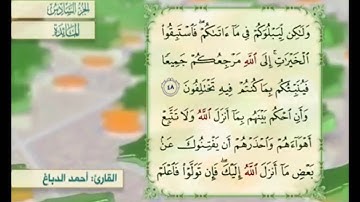 الجزء السادس
المائدة
وَلَٰكِن لِّيَبْلُوَكُمْ فِي مَا ءَاتَىٰكُمْ ۖ فَاسْتَبِقُوا
الْخَيْرَاتِ ۚ إِلَى اللَّهِ مَرْجِعُكُمْ جَمِيعًا
فَيُنَبِّئُكُم بِمَا كُنتُمْ فِيهِ تَخْتَلِفُونَ ٤٨
وَأَنِ احْكُم بَيْنَهُم بِمَا أَنزَلَ اللَّهُ وَلَا تَتَّبِعْ
أَهْوَاءَهُمْ وَاحْذَرْهُمْ أَن يَفْتِنُوكَ عَن
بَعْضِ مَا أَنزَلَ اللَّهُ إِلَيْكَ ۖ فَإِن تَوَلَّوْا فَاعْلَمْ
القارئ: أحمد الدباغ